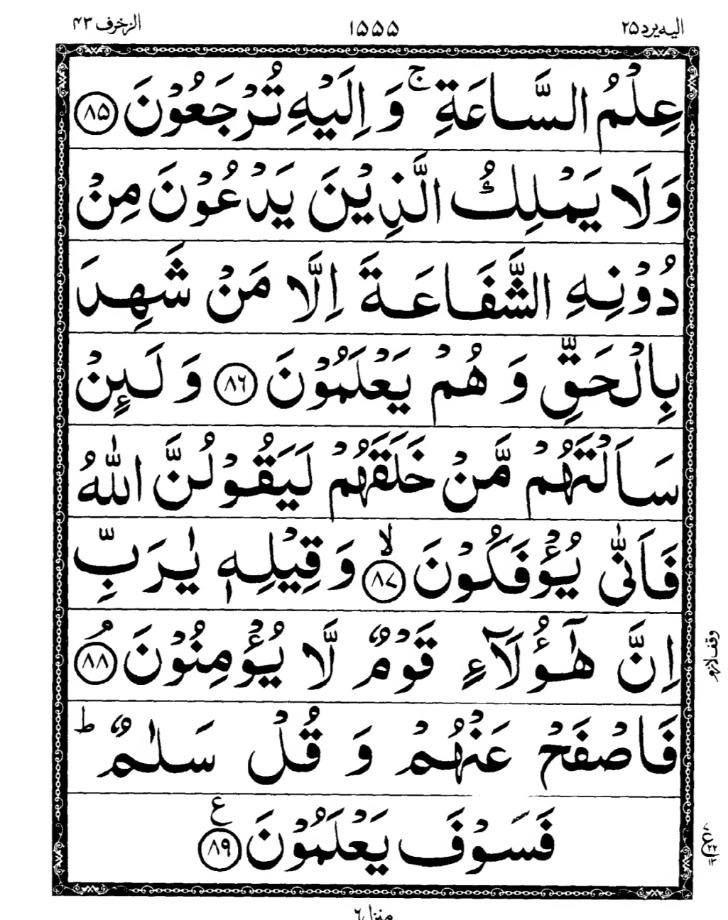 الیه یرد ۲۵ ۱۵۵۵ الزخرف ۴۳
عِلْمُ السَّاعَةِ ۚ وَ اِلَيْهِ تُرْجَعُوْنَ ۝۸۵
وَلَا يَمْلِكُ الَّذِيْنَ يَدْعُوْنَ مِنْ
دُوْنِهِ الشَّفَاعَةَ اِلَّا مَنْ شَهِدَ
بِالْحَقِّ وَ هُمْ يَعْلَمُوْنَ ۝۸۶ وَ لَىِٕنْ
سَاَلْتَهُمْ مَّنْ خَلَقَهُمْ لَيَقُوْلُنَّ اللّٰهُ
فَاَنّٰى يُؤْفَكُوْنَ ۝۸۷ۙ وَ قِيْلِهٖ يٰرَبِّ
اِنَّ هٰۤؤُلَآءِ قَوْمٌ لَّا يُؤْمِنُوْنَ ۝۸۸ۘ
وقف لازم
فَاصْفَحْ عَنْهُمْ وَ قُلْ سَلٰمٌ ؕ
فَسَوْفَ يَعْلَمُوْنَ ۝۸۹ ع
منزل ۶